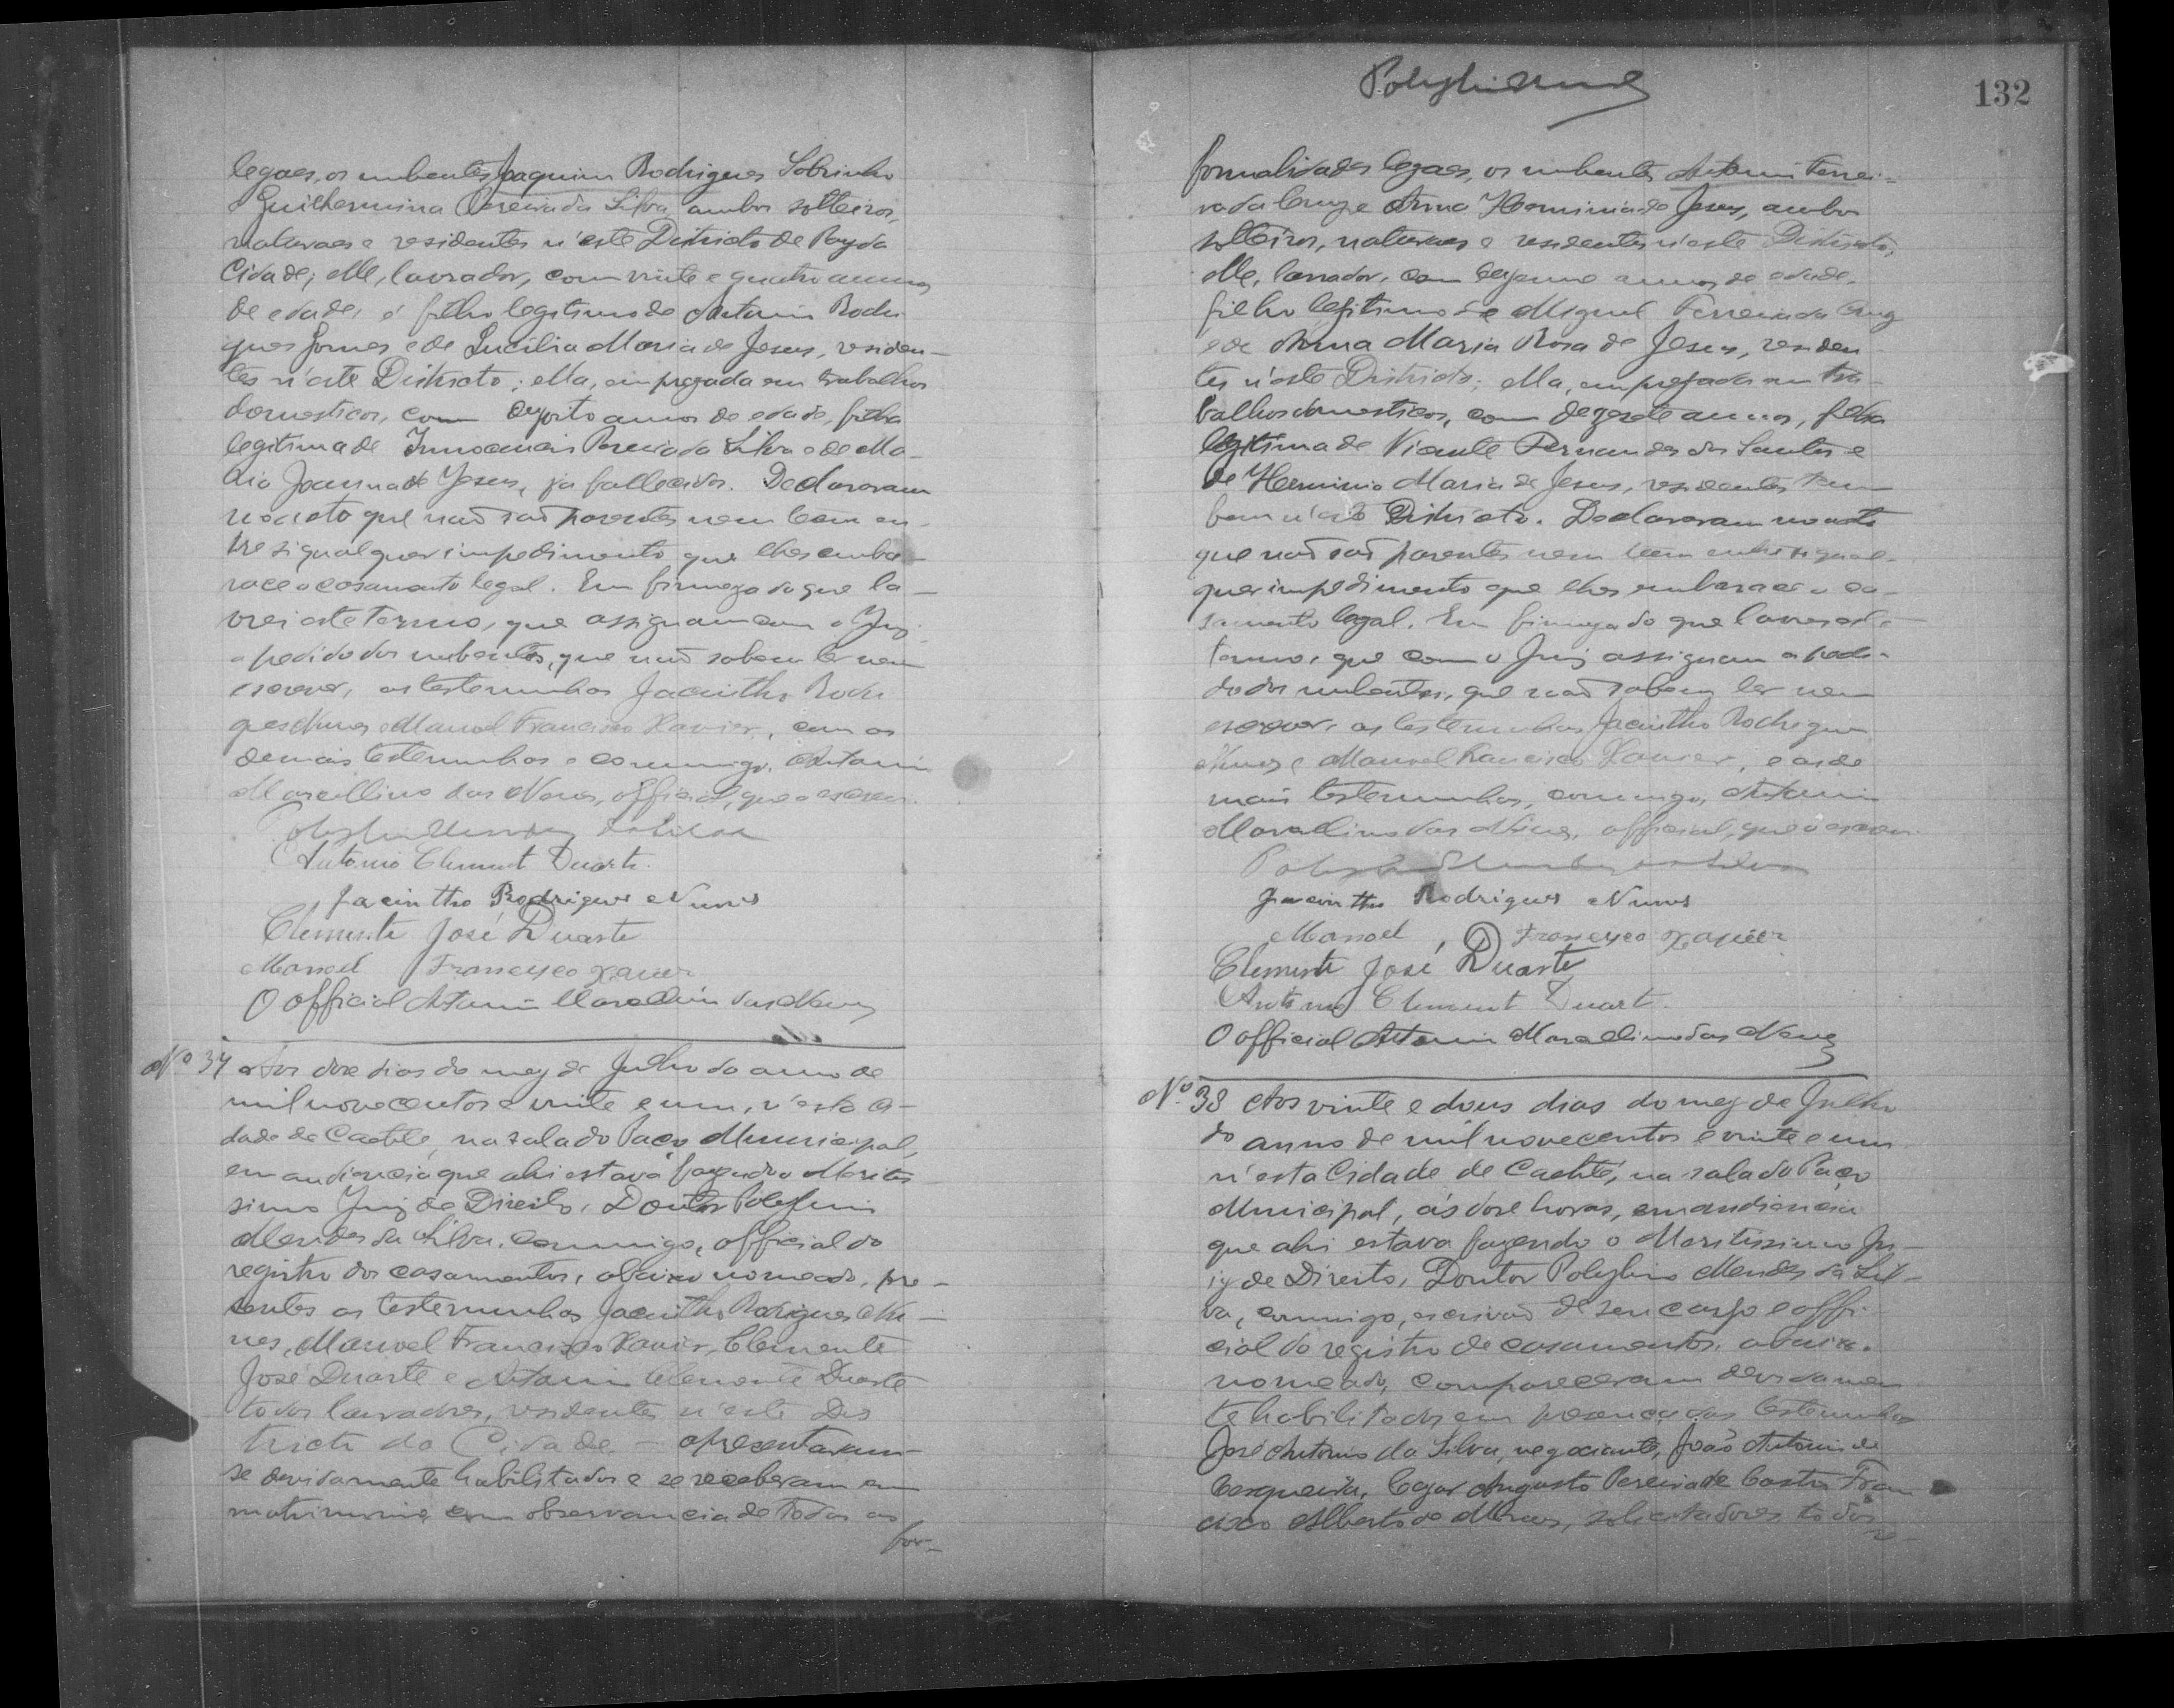 legaes, os nubentes Joaquim Rodrigues Sobrinho
e Guilhermina Pereira da Silva, ambos solteiros,
naturaes e residentes n'este Districto de Paz da
Cidade; elle, lavrador, com vinte e quatro annos
de edade, é filho legitimo de Antonio Rodri
gues Gomes e de Lucilia Maria de Jesus, residen-
tes n'este Districto; ella, empregada em trabalhos
domesticos, com dezoito annos de edade, filha
legitima de Innocencio Pereira da Silva e de Ma-
ria Joanna de Jesus, já fallecidos. Declararam
no acto que não são parentes nem tem en-
tre si qualquer impedimento que lhes emba-
race o casamento legal. Em firmeza do que la-
vrei este termo, que assignam com o Juiz
a pedido dos nubentes, que não sabem ler nem
escrever, as testemunhas Jacintho Rodri
gues Nunes e Manoel Francisco Xavier, com as
demais testemunhas e commigo, Antonio
Marcellino das Neves, official, que o escrevi.
Polybio Mendes da Silva
Antonio Clement Duarte.
Jacinttho Rodrigues Nunes
Clemente José Duarte
Manoel Francysco Xavier
O official Antonio Marcellino das Neves
Nº 37 Aos dose dias do mez de Julho do anno de
mil novecentos e vinte e um, n'esta Ci-
dade de Caetité, na sala do Paço Municipal,
em audiencia que ahi estava fazendo o Meritis
simo Juiz de Direito, Doutor Polybio
Mendes da Silva, commigo, official do
registro dos casamentos, abaixo nomeado, pre-
sentes as testemunhas Jacintho Rodrigues Nu-
nes, Manoel Francisco Xavier, Clemente
José Duarte e Antonio Clemente Duarte
todos lavradores, residentes n'este Dis
tricto da Cidade - apresentaram-
se devidamente habilitados e se receberam em
matrimonio com observancia de todas as
for-
132
formalidades legaes, os nubentes Antonio Ferrei-
ra da Cruz e Anna Herminia de Jesus, ambos
solteiros, naturaes e residentes n'este Districto;
elle, lavrador, com annos de edade,
filho legitimo de Miguel Ferreira da Cruz
e de Anna Maria Rosa de Jesus, residen
tes n'este Districto; ella, empregada em tra-
balhos domesticos, com dezesete annos, filha
legitima de Vicente Fernandes dos Santos e
de Herminia Maria de Jesus, residentes tam
bem n'este Districto. Declararam no acto
que não são parentes nem tem entre si qual-
quer impedimento que lhes embarace o ca-
samento legal. Em firmeza do que lavrei este
termo, que com o Juiz assignam a pedi-
do dos nubentes, que não sabem ler nem
escrever, as testemunhas Jacintho Rodrigues
Nunes e Manoel Francisco Xavier, e as de
mais testemunhas, commigo, Antonio
Marcellino das Neves, official, que o escrevi.
Polybio Mendes da Silva
Jacinttho Rodrigues Nunes
Manoel Francysco Xavier
Clemente José Duarte
Antonio Clement Duarte.
O official Antonio Marcellino das Neves
Nº 38 Aos vinte e dous dias do mez de Julho
do anno de mil novecentos e vinte e um
n'esta Cidade de Caetité, na sala do Paço
Municipal, ás dose horas, em audiencia
que ahi estava fazendo o Meritissimo Ju-
iz de Direito, Doutor Polybio Mendes da Sil-
va, commigo, escrivão de seu cargo e offi-
cial do registro de casamentos, abaixo
nomeado, compareceram devidamen
te habilitados em presença das testemunhas
José Antonio da Silva, negociante, João Antonio de
Cerqueira, Cezar Augusto Pereira de Castro, Fran
cisco Alberto de Moraes, solicitadores, todos
re-